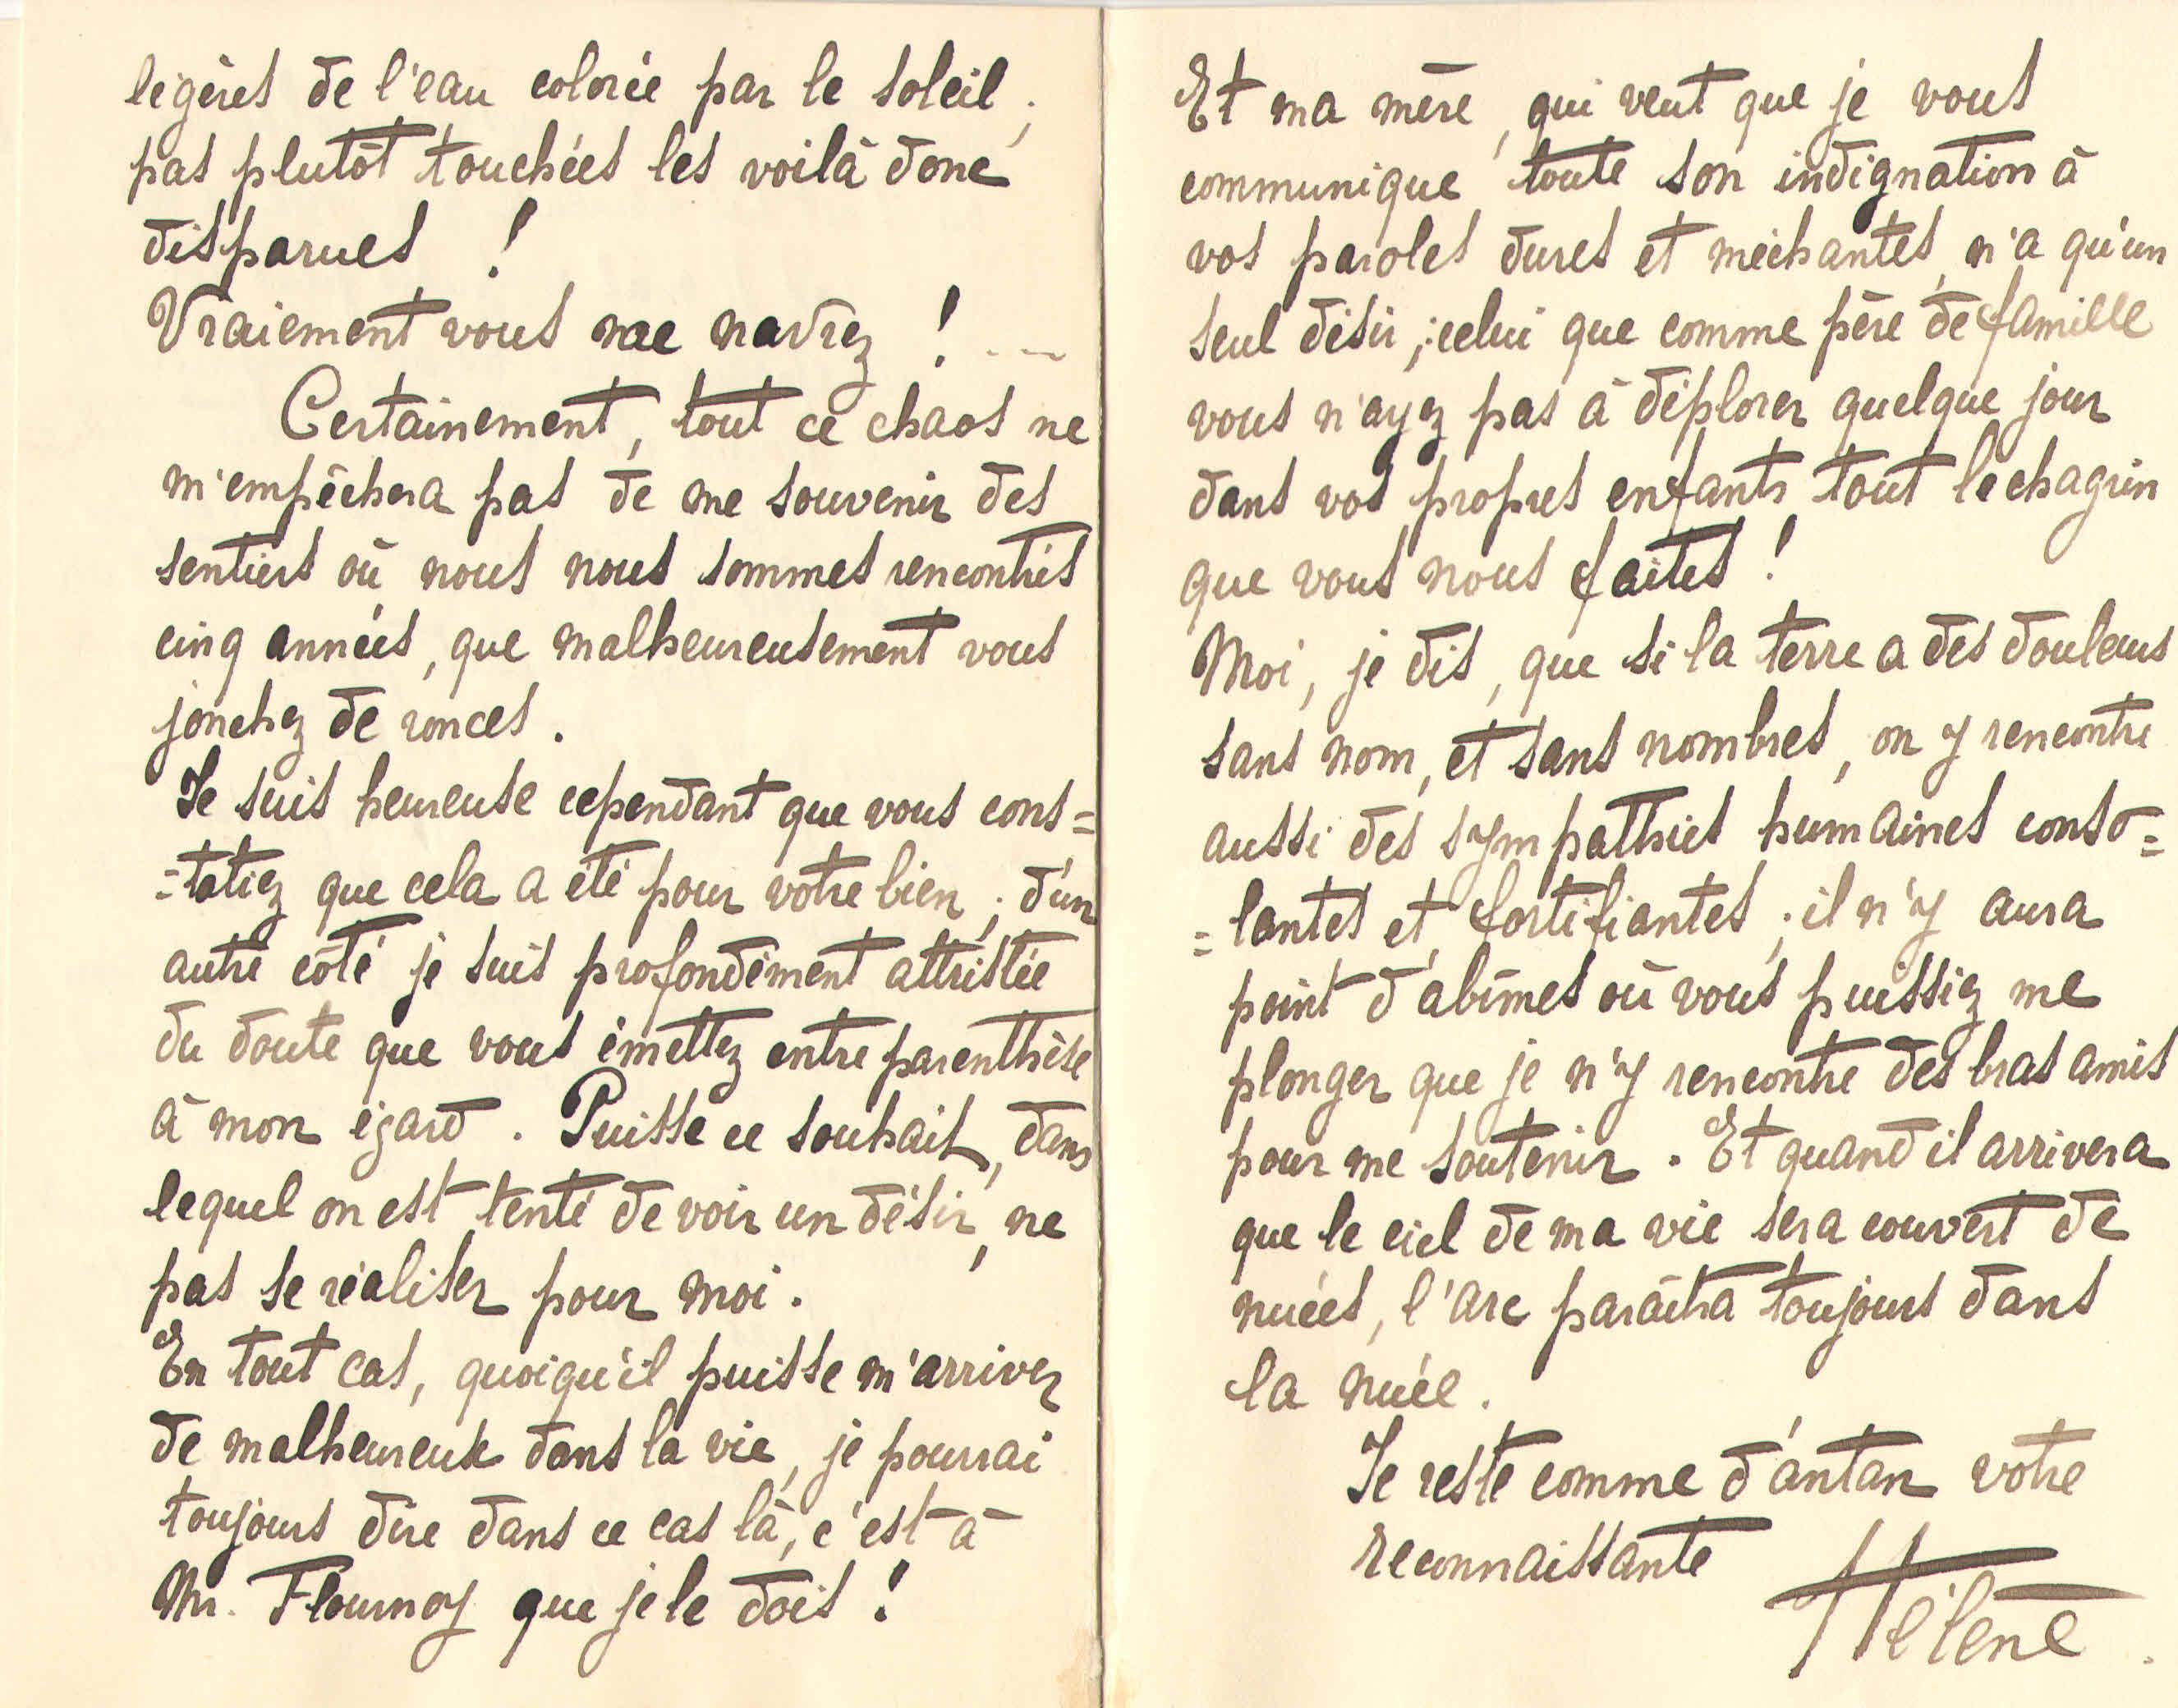 légères de l'eau colorée par le soleil ;
pas plutôt touchées les voilà donc
disparues !
Vraiement vous me navrez ! ...
Certainement, tout ce chaos ne
m'empêchera pas de me souvenir des
sentiers où nous nous sommes rencontrés
cinq années, que malheureusement vous
jonchez de ronces.
Je suis heureuse cependant que vous cons=
=tatiez que cela a été pour votre bien ; d'un
autre côté je suis profondément attristée
du doute que vous émettez entre parenthèse
à mon égard. Puisse ce souhait, dans
lequel on est tenté de voir un désir, ne
pas se réaliser pour moi.
En tout cas, quoiqu'il puisse m'arriver
de malheureux dans la vie, je pourrai
toujours dire dans ce cas là, c'est à
Mr. Flournoy que je le dois !
Et ma mère, qui veut que je vous
communique toute son indignation à
vos paroles dures et méchantes, n'a qu'un
seul désir ; celui que comme père de famille
vous n'ayez pas à déplorer quelque jour
dans vos propres enfants tout le chagrin
que vous nous faites !
Moi, je dis, que si la terre a des douleurs
sans nom, et sans nombres, on y rencontre
aussi des sympathies humaines conso=
=lantes et fortifiantes ; il n'y aura
point d'abîmes où vous puissiez me
plonger que je n'y rencontre des bras amis
pour me soutenir. Et quand il arrivera
que le ciel de ma vie sera couvert de
nuées, l'arc paraîtra toujours dans
la nuée.
Je reste comme d'antan votre
reconnaissante
Hélène.